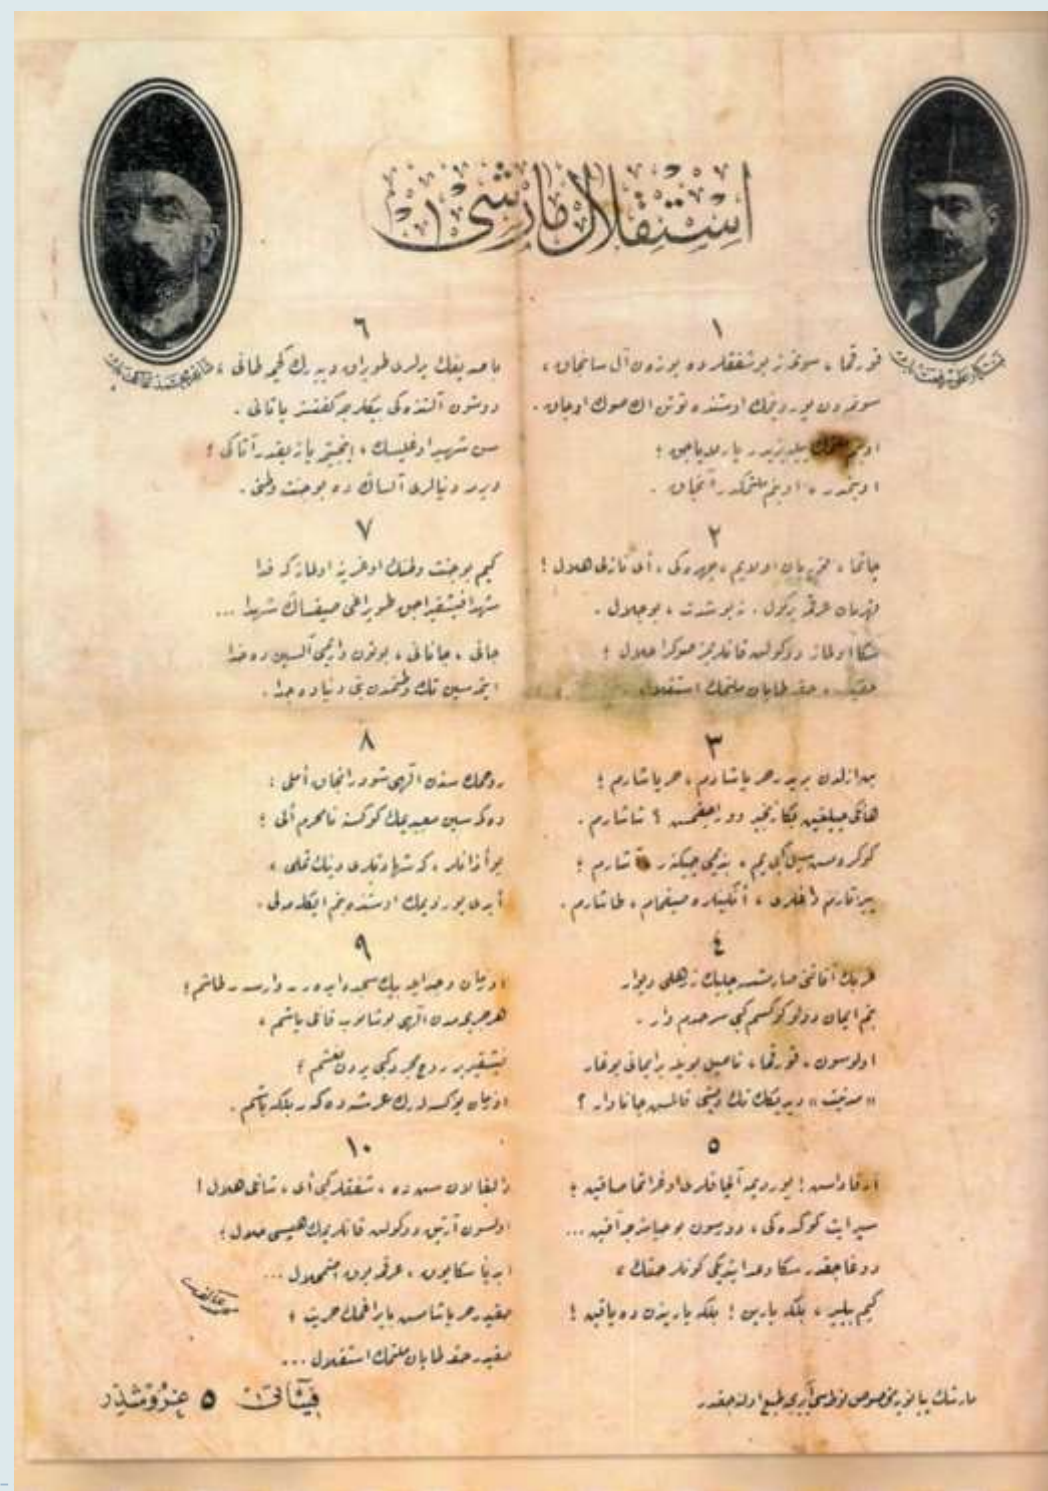 استقلال مارشی
١
قورقما، سونمز بو شفقلرده یوزن آل سانجاق،
سونمه‌دن یوردیمك اوستنده توتن اك صوك اوجاق.
او بنم ملتمك ییلدیزیدر پارلایاجق؛
او بنمدر، او بنم ملتمكدر آنجاق.
٢
چاتما، قربان اولایم، چهره‌كی، أی نازلی هلال!
قهرمان عرقمه بر كول. نه بو شدت، بو جلال.
سكا اولماز دوكولن قانلریمز صوكرا حلال؛
حقیدر، حقه طاپان ملتمك استقلال.
٣
بن ازلدن بریدر حر یاشادم، حر یاشارم؛
هانكی چیلغین بكا زنجیر ووراجقمش؟ شاشارم.
كوكره‌مش سیل كبی‌یم، بندیمی چیكنر، آشارم؛
ییرتارم داغلری، أنكینلره صیغمام، طاشارم.
٤
غربك آفاقنی صارمشسه چلیك زرهلی دیوار
بنم ایمان دولو كوكسم كبی سرحدم وار.
اولوسون، قورقما، ناصیل بویله بر ایمانی بوغار
«مدنیت» دیدیكك تك دیشی قالمش جاناوار؟
٥
آرقاداش! یوردیمه آلچاقلری اوغراتما صاقین؛
سپر ایت كوكده‌كی، دورسون بو حیاسزجه آقین...
دوغاجقدر سكا وعد ایتدیكی كونلر حقك،
كیم بیلیر، بلكه یارین! بلكه یاریندن ده یاقین!
٦
باصدیغك یرلری طوپراق دییه‌رك كچمه طانی،
دوشون آلتنده‌كی بیكلرجه كفنسز یاتانی.
سن شهید اوغلیسك، اینجیتمه یازیقدر آتاكی؛
ویرمه دنیالری آلساك ده بو جنت وطنی.
٧
كیم بو جنت وطنك اوغرینه اولماز كه فدا
شهدا فیشقیراجق طوپراغی صیقساك شهدا...
جانی، جانانی، بوتون واریمی آلسین ده خدا
ایتمه‌سین تك وطنمدن بنی دنیاده جدا.
٨
روحمك سندن الٓهی شودر آنجاق أملی:
دكمه‌سین معبدیمك كوكسنه نامحرم ألی؛
بو أذانلر، كه شهادتلری دینك تملی،
أبدی یوردیمك اوستنده بنم ایكله‌ملی.
٩
او زمان وجد ایله بیك سجده ایدر، وارسه، طاشم؛
هر جریحه‌مدن الٓهی بوشانوب قانلی یاشم،
فیشقیرر روح مجرد كبی یردن نعشم؛
او زمان یوكسله‌رك عرشه دكر بلكه باشم.
١٠
دالغالان سن ده، شفقلر كبی أی، شانلی هلال!
اولسون آرتیق دوكولن قانلریمك هپسی حلال؛
ابدیا سكا یوق، عرقمه یوق اضمحلال...
حقیدر حر یاشامش بایراغمك حریت؛
حقیدر حقه طاپان ملتمك استقلال...
محمد عاكف
مارشك پیانویه مخصوص نوطه‌سی آیریجه طبع اولنه‌جقدر
فیئاتی ٥ غروشدر